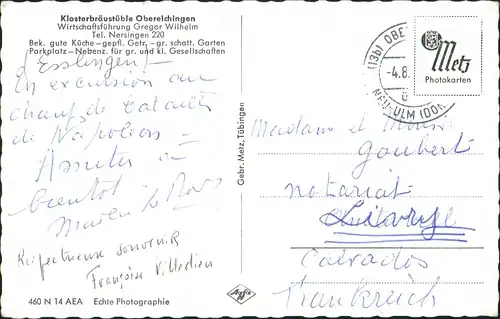 Klosterbräustüble Oberelchingen
Wirtschaftsführung Gregor Wilhelm
Tel. Nersingen 220
Bek. gute Küche – gepfl. Getr. – gr. schatt. Garten
Parkplatz – Nebenz. für gr. und kl. Gesellschaften
Esslingen –
En excursion au
champ de bataille
de Napoléon –
bientôt
Respectueux souvenir
Françoise
460 N 14 AEA Echte Photographie
Gebr. Metz, Tübingen
Agfa
(13b) OBE
-4.8.
NEU-ULM (DON
Metz
Photokarten
Madame et
Goubert
notariat
Calvados
Frankreich